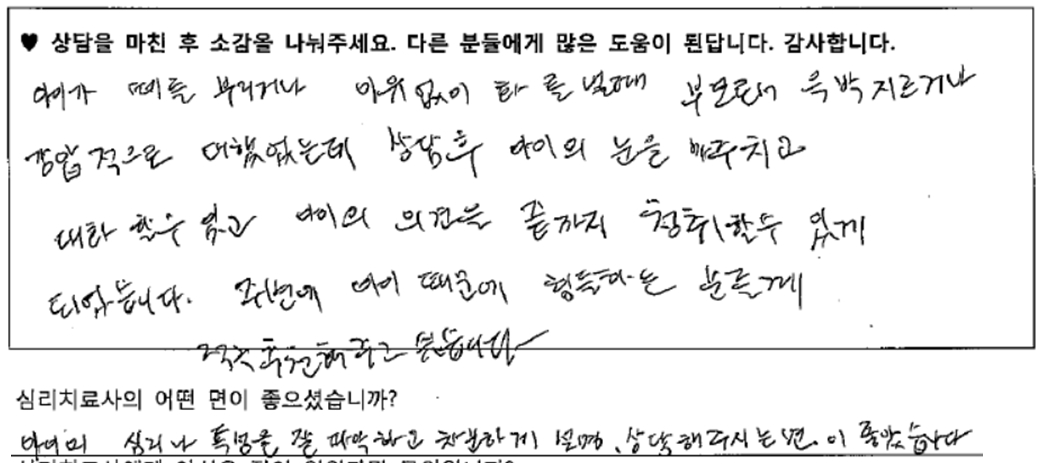 ♥ 상담을 마친 후 소감을 나눠주세요. 다른 분들에게 많은 도움이 된답니다. 감사합니다.
아이가 떼를 부리거나 이유없이 화를 낼때 부모로서 윽박지르거나
강압적으로 대했었는데 상담후 아이의 눈을 마주치고
대화 할수 있고 아이의 의견을 끝까지 청취할수 있게
되었습니다. 주변에 아이 때문에 힘들하는 분들께
적극 추천해주고 싶습니다
심리치료사의 어떤 면이 좋으셨습니까?
아이의 심리나 특성을 잘 파악하고 차분하게 설명, 상담해주시는면이 좋았습니다